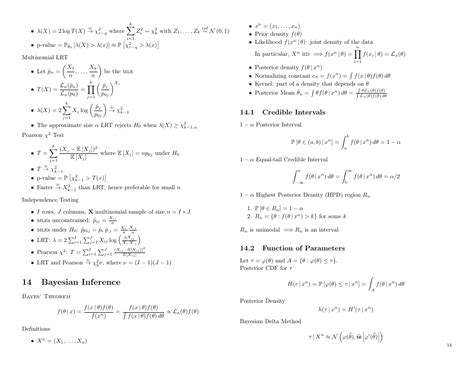 • λ(X) = 2 log T(X) →ᴰ χ²ᵣ₋q where Σᵢ₌₁ᵏ Zᵢ² ~ χ²ₖ with Z₁, . . . , Zₖ iid~ N (0, 1)
• p-value = ℙθ₀ [λ(X) > λ(x)] ≈ ℙ [χ²ᵣ₋q > λ(x)]
Multinomial LRT
• Let p̂ₙ = (X₁/n, . . . , Xₖ/n) be the MLE
• T(X) = Lₙ(p̂ₙ)/Lₙ(p₀) = ∏ⱼ₌₁ᵏ (p̂ⱼ/p₀ⱼ)^Xⱼ
• λ(X) = 2 Σⱼ₌₁ᵏ Xⱼ log (p̂ⱼ/p₀ⱼ) →ᴰ χ²ₖ₋₁
• The approximate size α LRT rejects H₀ when λ(X) ≥ χ²ₖ₋₁,α
Pearson χ² Test
• T = Σⱼ₌₁ᵏ (Xⱼ − 𝔼 [Xⱼ])²/𝔼 [Xⱼ] where 𝔼 [Xⱼ] = np₀ⱼ under H₀
• T →ᴰ χ²ₖ₋₁
• p-value = ℙ [χ²ₖ₋₁ > T(x)]
• Faster →ᴰ χ²ₖ₋₁ than LRT, hence preferable for small n
Independence Testing
• I rows, J columns, X multinomial sample of size n = I ∗ J
• MLEs unconstrained: p̂ᵢⱼ = Xᵢⱼ/n
• MLEs under H₀: p̂₀ᵢⱼ = p̂ᵢ· p̂·ⱼ = Xᵢ·/n X·ⱼ/n
• LRT: λ = 2 Σᵢ₌₁ᴵ Σⱼ₌₁ᴶ Xᵢⱼ log (nXᵢⱼ/Xᵢ·X·ⱼ)
• Pearson χ²: T = Σᵢ₌₁ᴵ Σⱼ₌₁ᴶ (Xᵢⱼ−𝔼[Xᵢⱼ])²/𝔼[Xᵢⱼ]
• LRT and Pearson →ᴰ χ²ₖν, where ν = (I − 1)(J − 1)
14 Bayesian Inference
Bayes' Theorem
f(θ | x) = f(x | θ)f(θ)/f(xⁿ) = f(x | θ)f(θ)/∫ f(x | θ)f(θ) dθ ∝ Lₙ(θ)f(θ)
Definitions
• Xⁿ = (X₁, . . . , Xₙ)
• xⁿ = (x₁, . . . , xₙ)
• Prior density f(θ)
• Likelihood f(xⁿ | θ): joint density of the data
In particular, Xⁿ iid ⟹ f(xⁿ | θ) = ∏ᵢ₌₁ⁿ f(xᵢ | θ) = Lₙ(θ)
• Posterior density f(θ | xⁿ)
• Normalizing constant cₙ = f(xⁿ) = ∫ f(x | θ)f(θ) dθ
• Kernel: part of a density that depends on θ
• Posterior Mean θ̄ₙ = ∫ θf(θ | xⁿ) dθ = ∫ θLₙ(θ)f(θ) dθ/∫ Lₙ(θ)f(θ) dθ
14.1 Credible Intervals
1 − α Posterior Interval
ℙ [θ ∈ (a, b) | xⁿ] = ∫ₐᵇ f(θ | xⁿ) dθ = 1 − α
1 − α Equal-tail Credible Interval
∫₋∞ᵃ f(θ | xⁿ) dθ = ∫ᵇ^∞ f(θ | xⁿ) dθ = α/2
1 − α Highest Posterior Density (HPD) region Rₙ
1. ℙ [θ ∈ Rₙ] = 1 − α
2. Rₙ = {θ : f(θ | xⁿ) > k} for some k
Rₙ is unimodal ⟹ Rₙ is an interval
14.2 Function of Parameters
Let τ = φ(θ) and A = {θ : φ(θ) ≤ τ}.
Posterior CDF for τ
H(r | xⁿ) = ℙ [φ(θ) ≤ τ | xⁿ] = ∫_A f(θ | xⁿ) dθ
Posterior Density
h(τ | xⁿ) = H′(τ | xⁿ)
Bayesian Delta Method
τ | Xⁿ ≈ N (φ(θ̂), ŝe |φ′(θ̂)|)
14